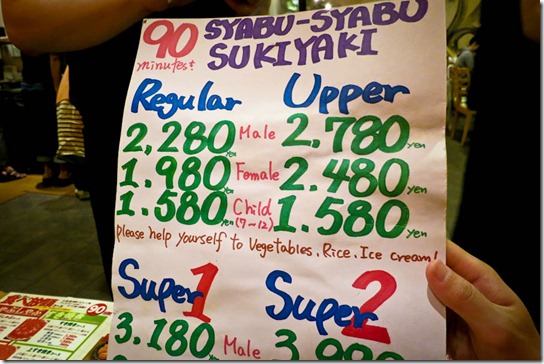 90 minutes! SYABU-SYABU
SUKIYAKI
Regular Upper
2,280yen Male 2,780yen
1.980yen Female 2.480yen
1.580yen Child (7~12) 1.580yen
please help yourself to Vegetables. Rice. Ice cream!
Super 1 Super 2
3.180 Male